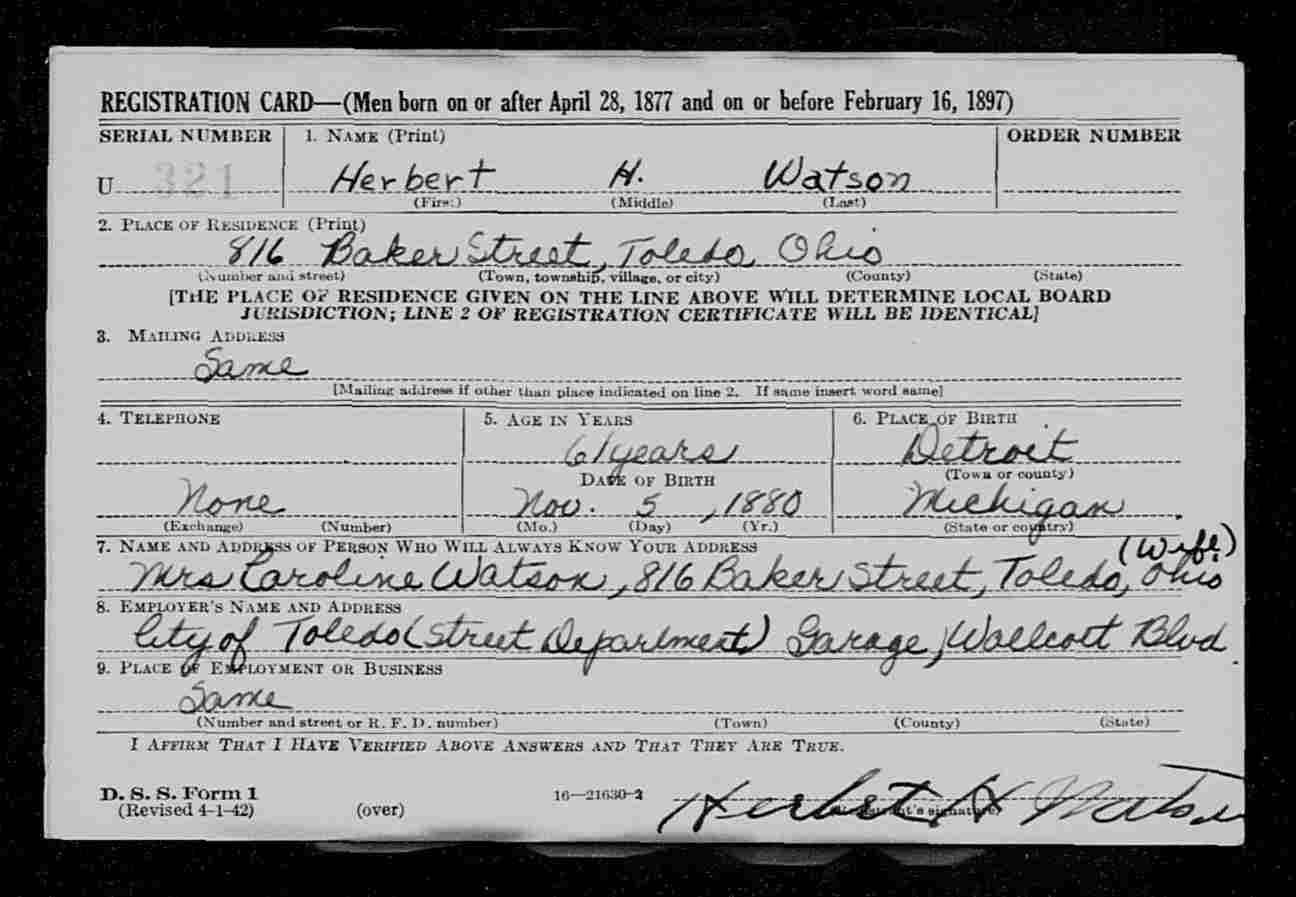 REGISTRATION CARD—(Men born on or after April 28, 1877 and on or before February 16, 1897)
SERIAL NUMBER 1. NAME (Print) ORDER NUMBER
U 321 Herbert H. Watson
(First) (Middle) (Last)
2. PLACE OF RESIDENCE (Print)
816 Baker Street, Toledo, Ohio
(Number and street) (Town, township, village, or city) (County) (State)
[THE PLACE OF RESIDENCE GIVEN ON THE LINE ABOVE WILL DETERMINE LOCAL BOARD
JURISDICTION; LINE 2 OF REGISTRATION CERTIFICATE WILL BE IDENTICAL]
3. MAILING ADDRESS
Same
[Mailing address if other than place indicated on line 2. If same insert word same]
4. TELEPHONE 5. AGE IN YEARS 6. PLACE OF BIRTH
61 years Detroit
DATE OF BIRTH (Town or county)
None Nov. 5, 1880 Michigan.
(Exchange) (Number) (Mo.) (Day) (Yr.) (State or country)
7. NAME AND ADDRESS OF PERSON WHO WILL ALWAYS KNOW YOUR ADDRESS
(Wife)
Mrs Caroline Watson, 816 Baker Street, Toledo, Ohio
8. EMPLOYER'S NAME AND ADDRESS
City of Toledo (Street Department) Garage, Wallcott Blvd.
9. PLACE OF EMPLOYMENT OR BUSINESS
Same
(Number and street or R. F. D. number) (Town) (County) (State)
I AFFIRM THAT I HAVE VERIFIED ABOVE ANSWERS AND THAT THEY ARE TRUE.
D. S. S. Form 1
(Revised 4-1-42) (over) 16—21630-2 Herbert H Watson
(Registrant's signature)